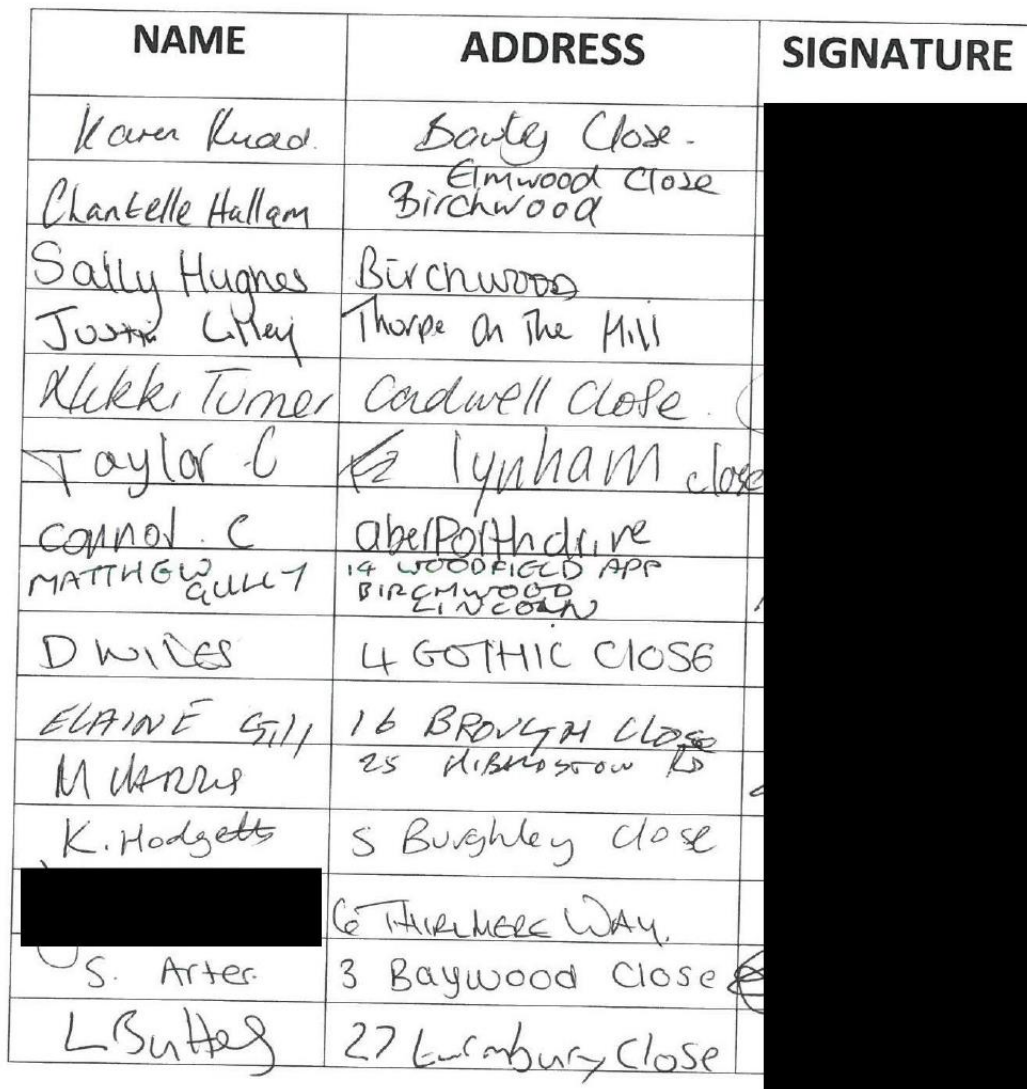 NAME ADDRESS SIGNATURE
Karen Close.
Elmwood Close
Chantelle Hallam Birchwood
Sally Hughes Birchwood
Thorpe On The Hill
Nikki Turner Cadwell Close.
Taylor C lynham close
connor. C aberPorthdrive
MATTHEW 14 WOODFIELD APP
GULLY BIRCHWOOD
LINCOLN
D WILES 4 GOTHIC ClOSE
ELAINE Gill 16 BROUGH Close
M HARRIS 25 HIBALDSTOW RD
K. Hodgetts 5 Burghley Close
6 THIRLMERE WAY.
S. Arter. 3 Baywood Close
L 27 Close